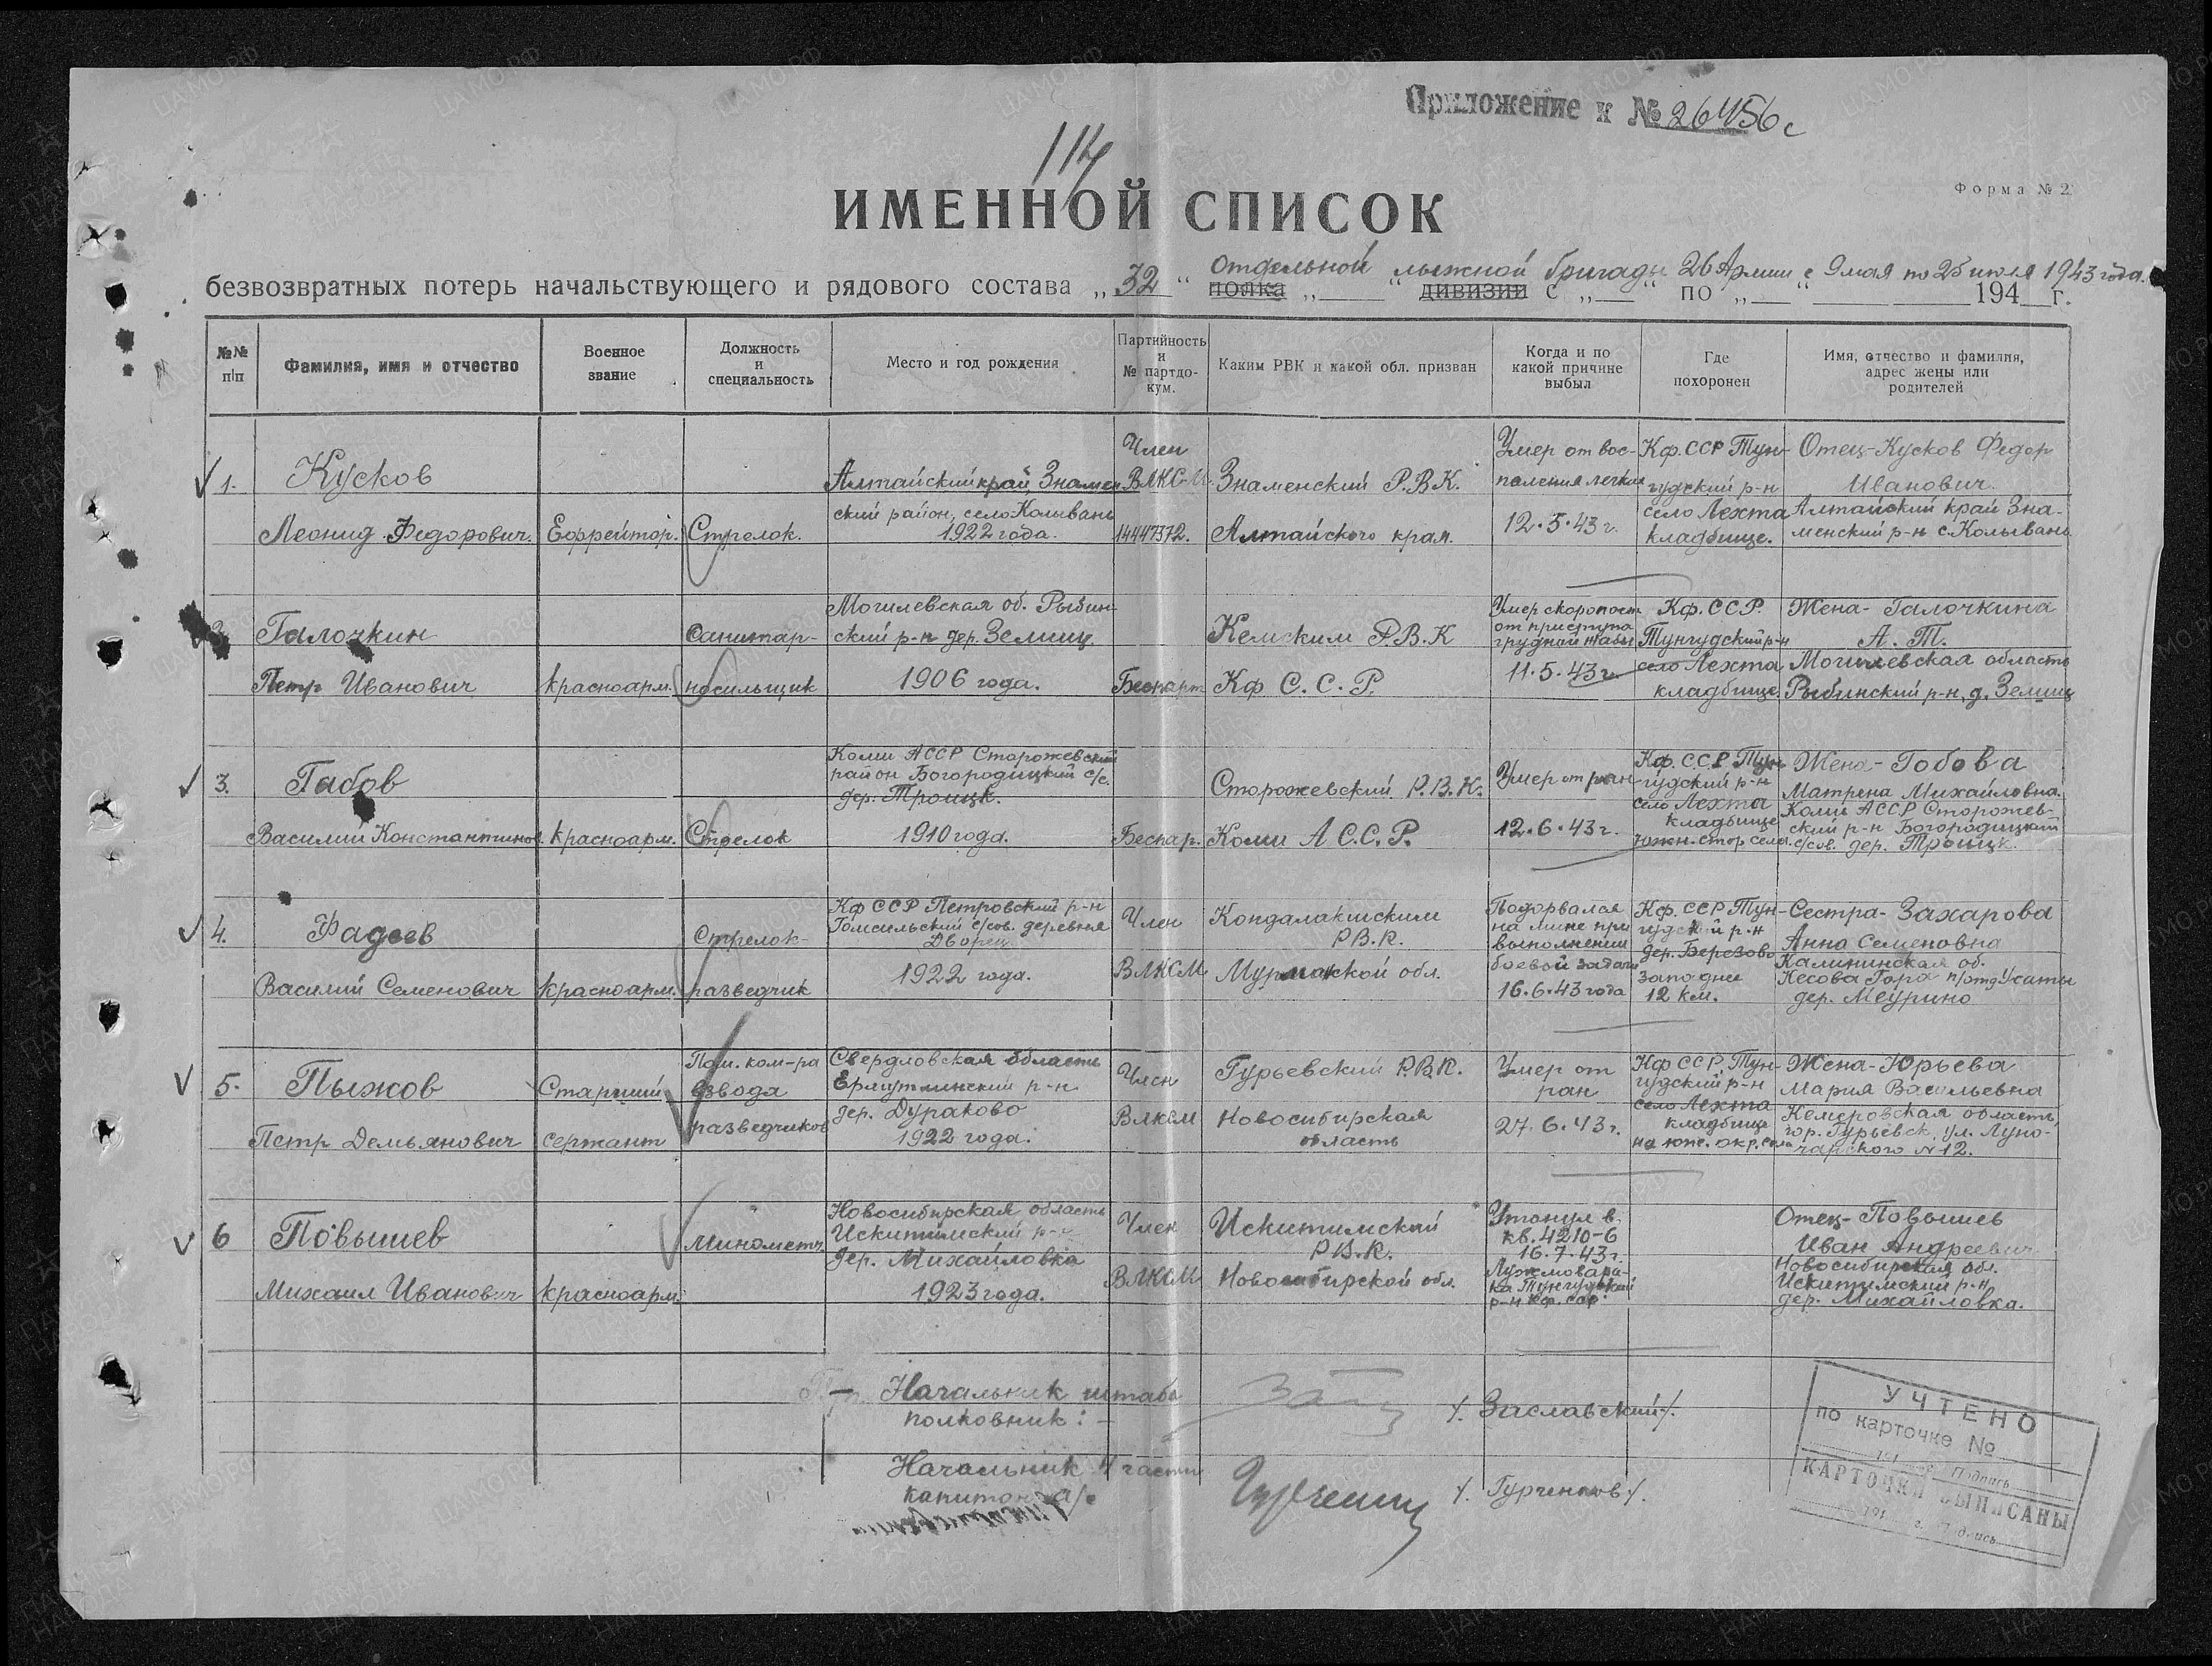 Приложение к № 26456с
114
ИМЕННОЙ СПИСОК
Форма № 2
безвозвратных потерь начальствующего и рядового состава „32“ полка „ “ дивизии с „ “ по „ “ 194 г.
Отдельной лыжной бригады 26 Армии с 9 мая по 25 июля 1943 года.
№№ п/п
Фамилия, имя и отчество
Военное звание
Должность и специальность
Место и год рождения
Партийность и № партдокум.
Каким РВК и какой обл. призван
Когда и по какой причине выбыл
Где похоронен
Имя, отчество и фамилия, адрес жены или родителей
1.
Кусков
Леонид Федорович.
Ефрейтор.
Стрелок.
Алтайский край Знамен
ский район, село Колывань
1922 года.
Член
ВЛКСМ
14447372.
Знаменский Р.В.К.
Алтайского края.
Умер от вос-
паления легких
12.5.43 г.
Кф.ССР Тун-
гудский р-н
село Лехта
кладбище.
Отец-Кусков Федор
Иванович.
Алтайский край Зна-
менский р-н с.Колывань
2.
Галочкин
Петр Иванович
красноарм.
Санитар-
носильщик
Могилевская об. Рыбин-
ский р-н дер. Землиц.
1906 года.
Беспарт
Кемским Р.В.К
Кф С.С.Р.
Умер скоропост
от приступа
грудной жабы
11.5.43 г.
Кф.ССР.
Тунгудский р-н
село Лехта
кладбище.
Жена-Галочкина
А. Т.
Могилевская область
Рыбинский р-н, д. Землиц
3.
Габов
Василий Константинов.
красноарм.
Стрелок
Коми АССР Сторожевский
район Богородицкий с/с.
дер. Троицк.
1910 года.
Беспар.
Сторожевский Р.В.К.
Коми А С.С.Р.
Умер от ран
12.6.43 г.
Кф.ССР Тун-
гудский р-н
село Лехта
кладбище
южн. стор села.
Жена-Гобова
Матрена Михайловна.
Коми АССР Сторожев-
ский р-н Богородицкий
с/сов. дер. Троицк.
4.
Фадеев
Василий Семенович
красноарм.
Стрелок-
разведчик
Кф ССР Петровский р-н
с/сов. деревня
Дворец
1922 года.
Член
ВЛКСМ
Кондалакшским
РВ.К.
Мурманской обл.
Подорвался
на мине при
выполнении
боевой задачи
16.6.43 года
Кф.ССР Тун-
гудский р-н
дер. Березово
западнее
12 км.
Сестра-Захарова
Анна Семеновна
Калининская об.
Кесова Гора п/отд Усаты
дер. Меурино
5.
Пыжов
Петр Демьянович
Старший
сержант
Пом. ком-ра
взвода
разведчиков
Свердловская область
р-н
дер. Дураково
1922 года.
Член
Влксм
Гурьевский Р.В.К.
Новосибирская
область
Умер от
ран
27.6.43 г.
Кф ССР, Тун-
гудский р-н
село Лехта
кладбище
на юж. окр. села
Жена-Юрьева
Мария Васильевна
Кемеровская область,
гор. Гурьевск, ул. Луно-
чарского №12.
6
Повышев
Михаил Иванович
красноарм.
Минометч.
Новосибирская область
Искитимский р-н
дер. Михайловка
1923 года.
Член
ВЛКСМ
Искитимский
Р.В.К.
Новосибирской обл.
Утонул в
кв. 4210-6
16.7.43 г.
Тунгудский
р-н Кф. сср.
Отец-Повышев
Иван Андреевич
Новосибирская обл.
Искитимский р-н,
дер. Михайловка.
Начальник штаба
полковник: -
/. Заславский ./.
Начальник 4 части
капитон а/с
/. Гурченков ./.
УЧТЕНО
по карточке №
194 г. Подпись
КАРТОЧКИ ВЫПИСАНЫ
194 г. Подпись